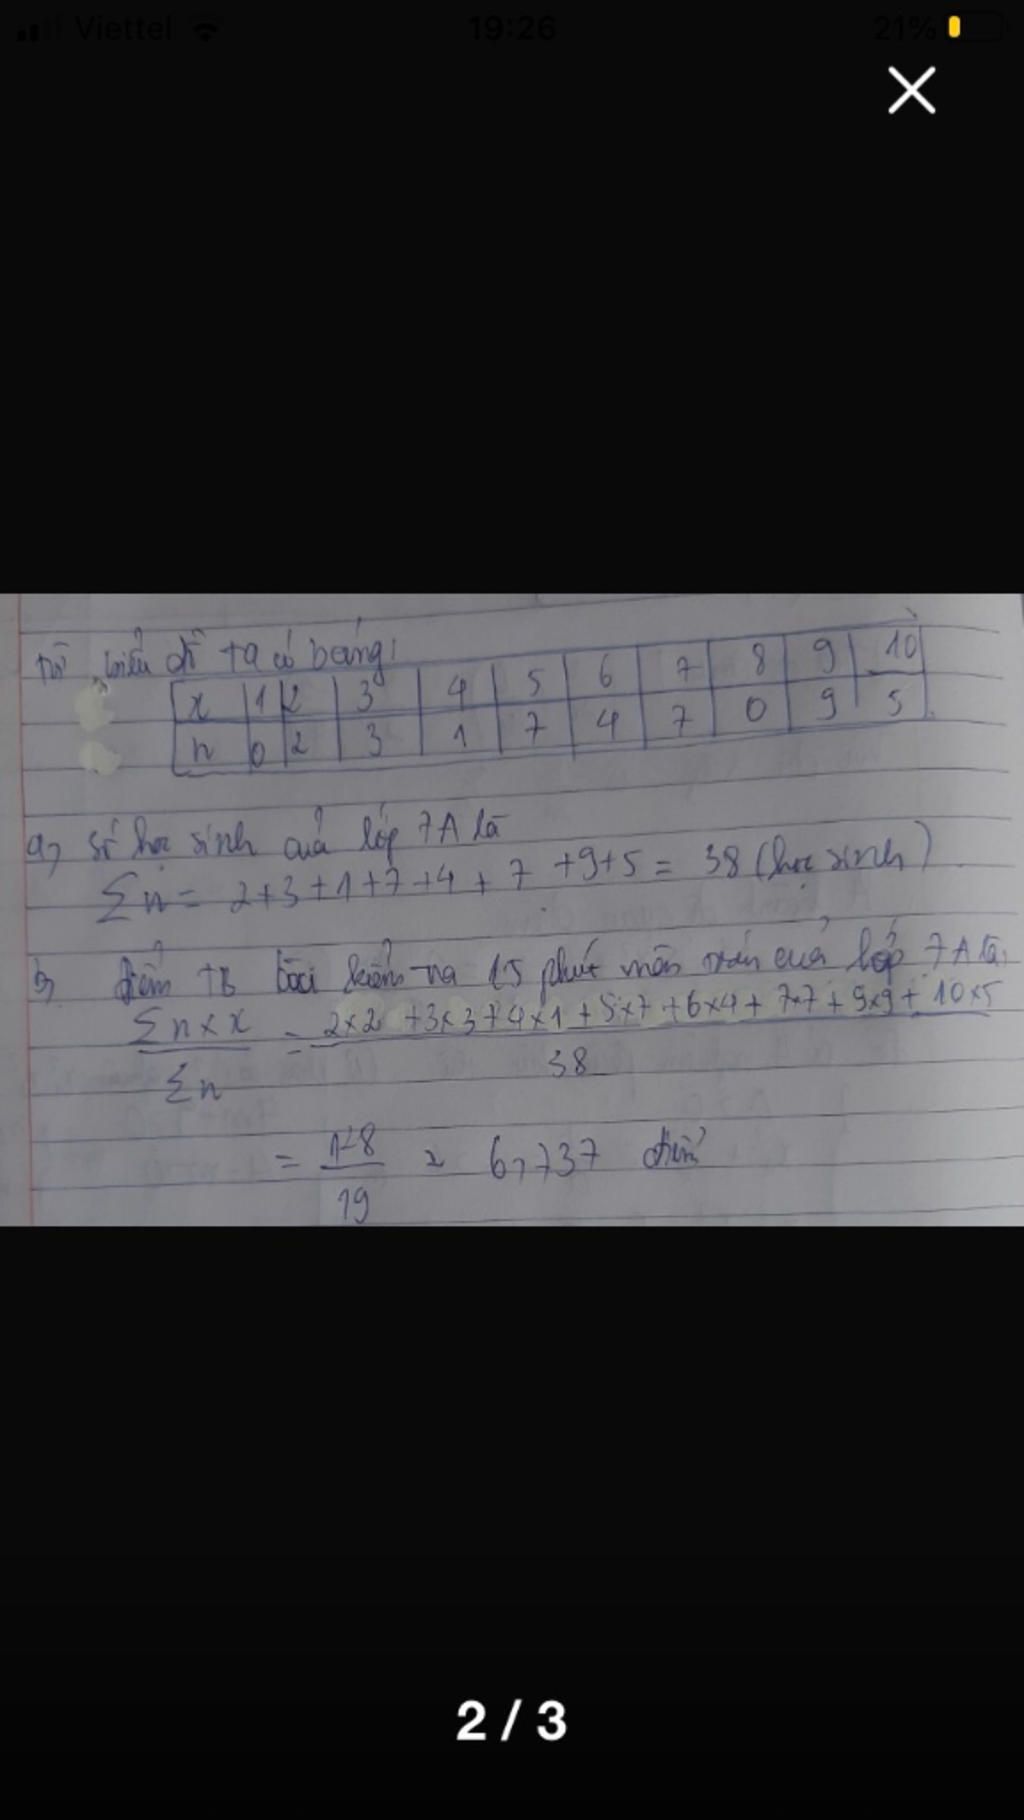 Viettel 19:26 21%
Từ biểu đồ ta có bảng:
x 1 2 3 4 5 6 7 8 9 10
n 0 2 3 1 7 4 7 0 9 5
a, số học sinh của lớp 7A là
Σn = 2+3+1+7+4+7+9+5 = 38 (học sinh)
b, điểm TB bài kiểm tra 15 phút môn toán của lớp 7A là,
Σn×x = 2×2+3×3+4×1+5×7+6×4+7×7+9×9+10×5
Σn 38
= 128 ≈ 6,737 điểm
19
2 / 3